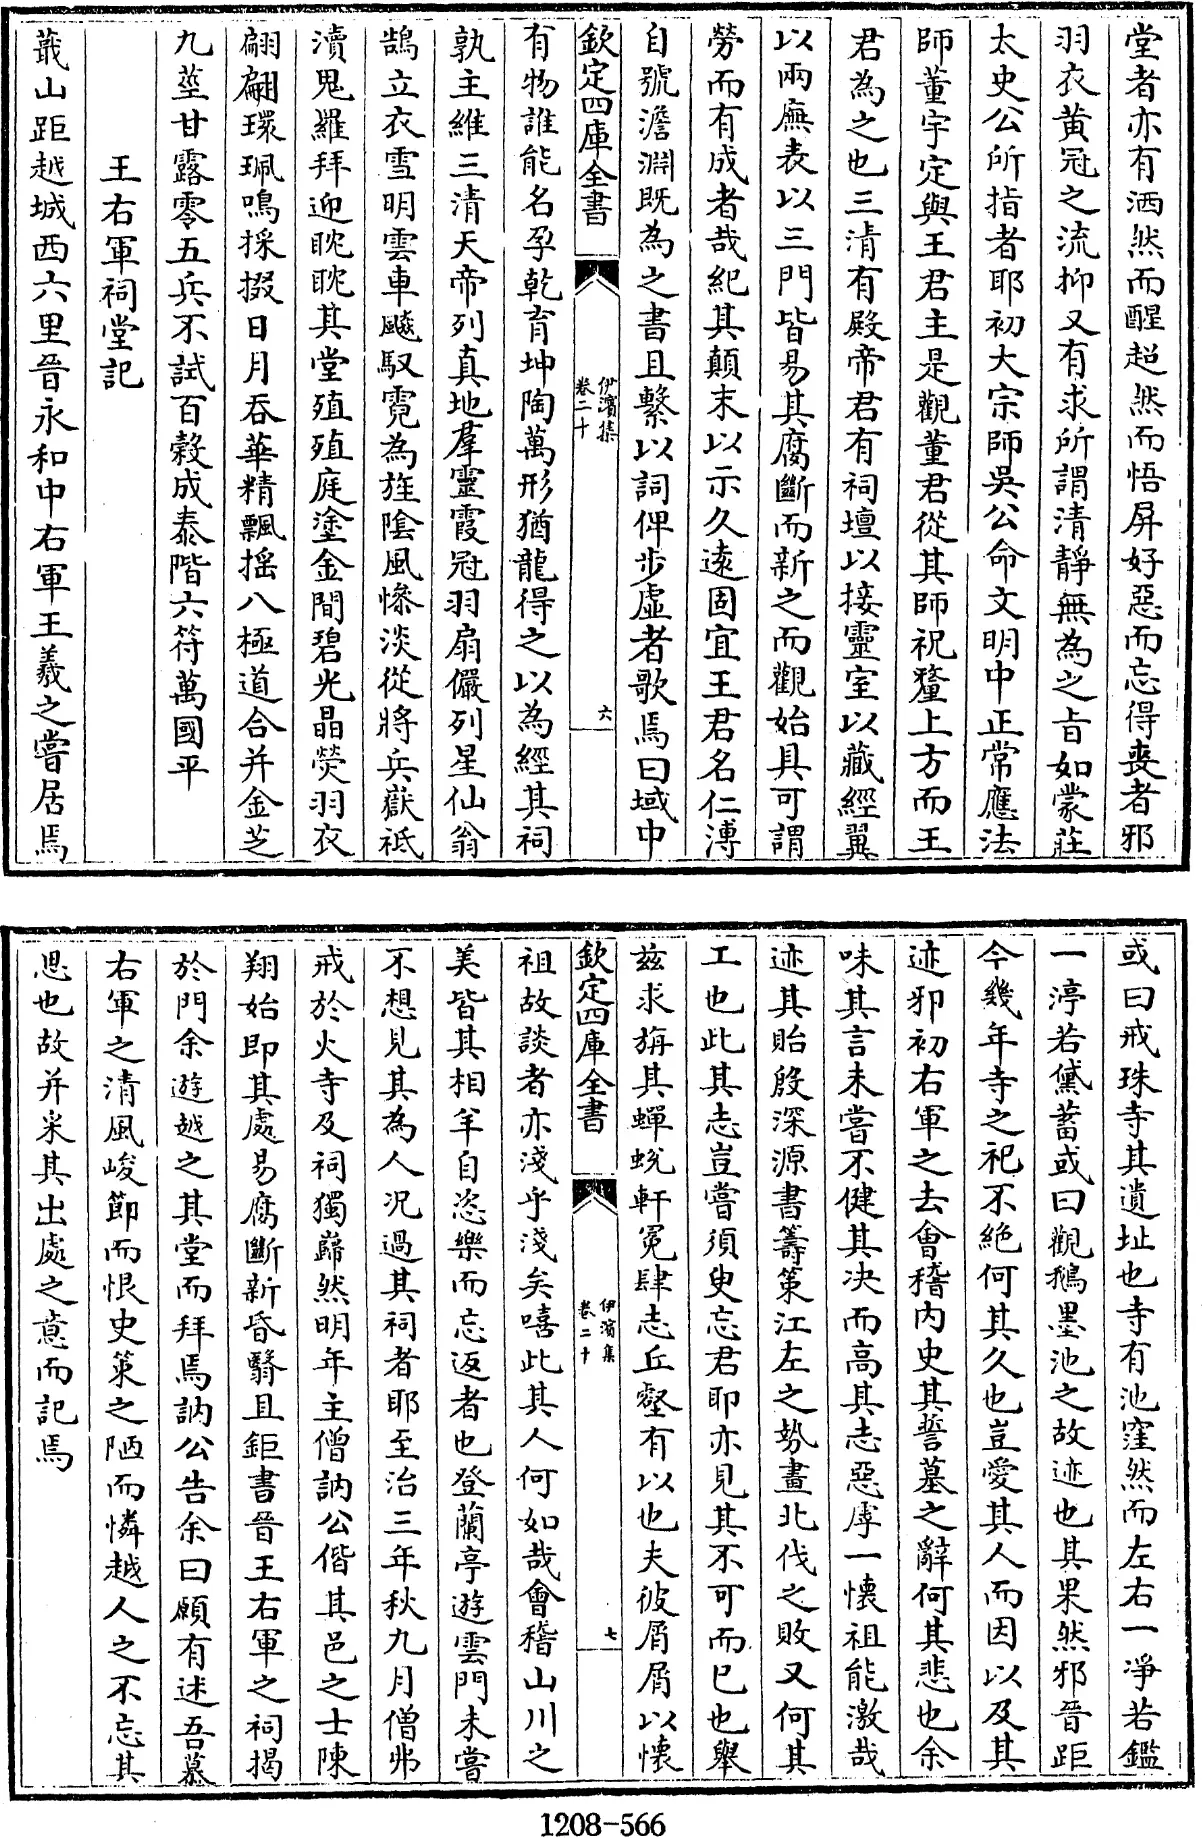 堂者亦有洒然而醒超然而悟屏好惡而忘得喪者邪
羽衣黄冠之流抑又有求所謂清靜無為之旨如蒙莊
太史公所指者耶初大宗師吳公命文明中正常應法
師董宇定與王君主是觀董君從其師祝釐上方而王
君為之也三清有殿帝君有祠壇以接靈室以藏經翼
以兩廡表以三門皆易其腐斷而新之而觀始具可謂
勞而有成者哉紀其顛末以示久逺固宜王君名仁溥
自號澹淵既為之書且繫以詞俾步虛者歌焉曰域中
欽定四庫全書
伊濱集
卷二十
六
有物誰能名孕乾育坤陶萬形猶龍得之以為經其祠
孰主維三清天帝列真地羣靈霞冠羽扇儼列星仙翁
鵠立衣雪明雲車飈馭霓為旌隂風慘淡從將兵嶽祇
瀆鬼羅拜迎眈眈其堂殖殖庭塗金間碧光晶熒羽衣
翩翩環珮鳴採掇日月吞華精飄揺八極道合并金芝
九莖甘露零五兵不試百穀成泰階六符萬國平
王右軍祠堂記
蕺山距越城西六里晉永和中右軍王羲之嘗居焉
或曰戒珠寺其遺址也寺有池窪然而左右一凈若鑑
一渟若黛蓄或曰觀鵝墨池之故迹也其果然邪晉距
今幾年寺之祀不絶何其久也豈愛其人而因以及其
迹邪初右軍之去會稽内史其誓墓之辭何其悲也余
味其言未嘗不健其決而高其志惡虖一懐祖能激哉
迹其貽殷深源書籌策江左之勢畫北伐之敗又何其
工也此其志豈嘗須臾忘君耶亦見其不可而已也舉
兹求旃其蟬蛻軒冕肆志丘壑有以也夫彼屑屑以懐
欽定四庫全書
伊濱集
卷二十
七
祖故談者亦淺乎淺矣嘻此其人何如哉會稽山川之
美皆其相羊自恣樂而忘返者也登蘭亭遊雲門未嘗
不想見其為人况過其祠者耶至治三年秋九月僧弗
戒於火寺及祠獨巋然明年主僧訥公偕其邑之士陳
翔始即其處易腐斷新昏翳且鉅書晉王右軍之祠揭
於門余遊越之其堂而拜焉訥公告余曰願有述吾慕
右軍之清風峻節而恨史策之陋而憐越人之不忘其
思也故并采其出處之意而記焉
1208-566